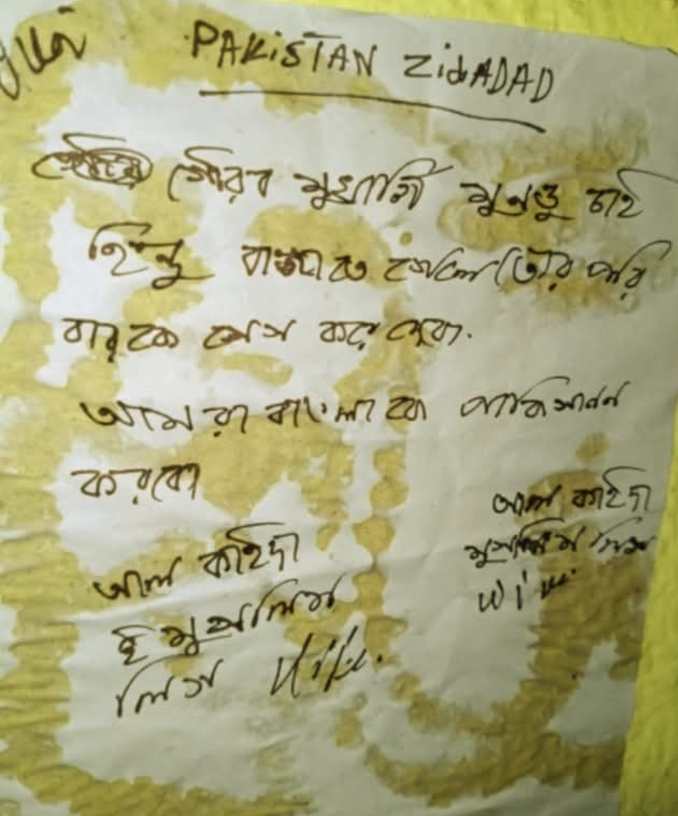 PAKiSTAN ZidADAD
গৌরব মুখার্জি মুন্ডু চাই
হিন্দু গেলে তোর পরি
বারকে শেষ করে দেবো.
আমরা বাংলাকে পাকিস্তান
করবো
আল কাইদা
মুসলিম লিগ
আল কাইদা
ই মুসলিম
লিগ